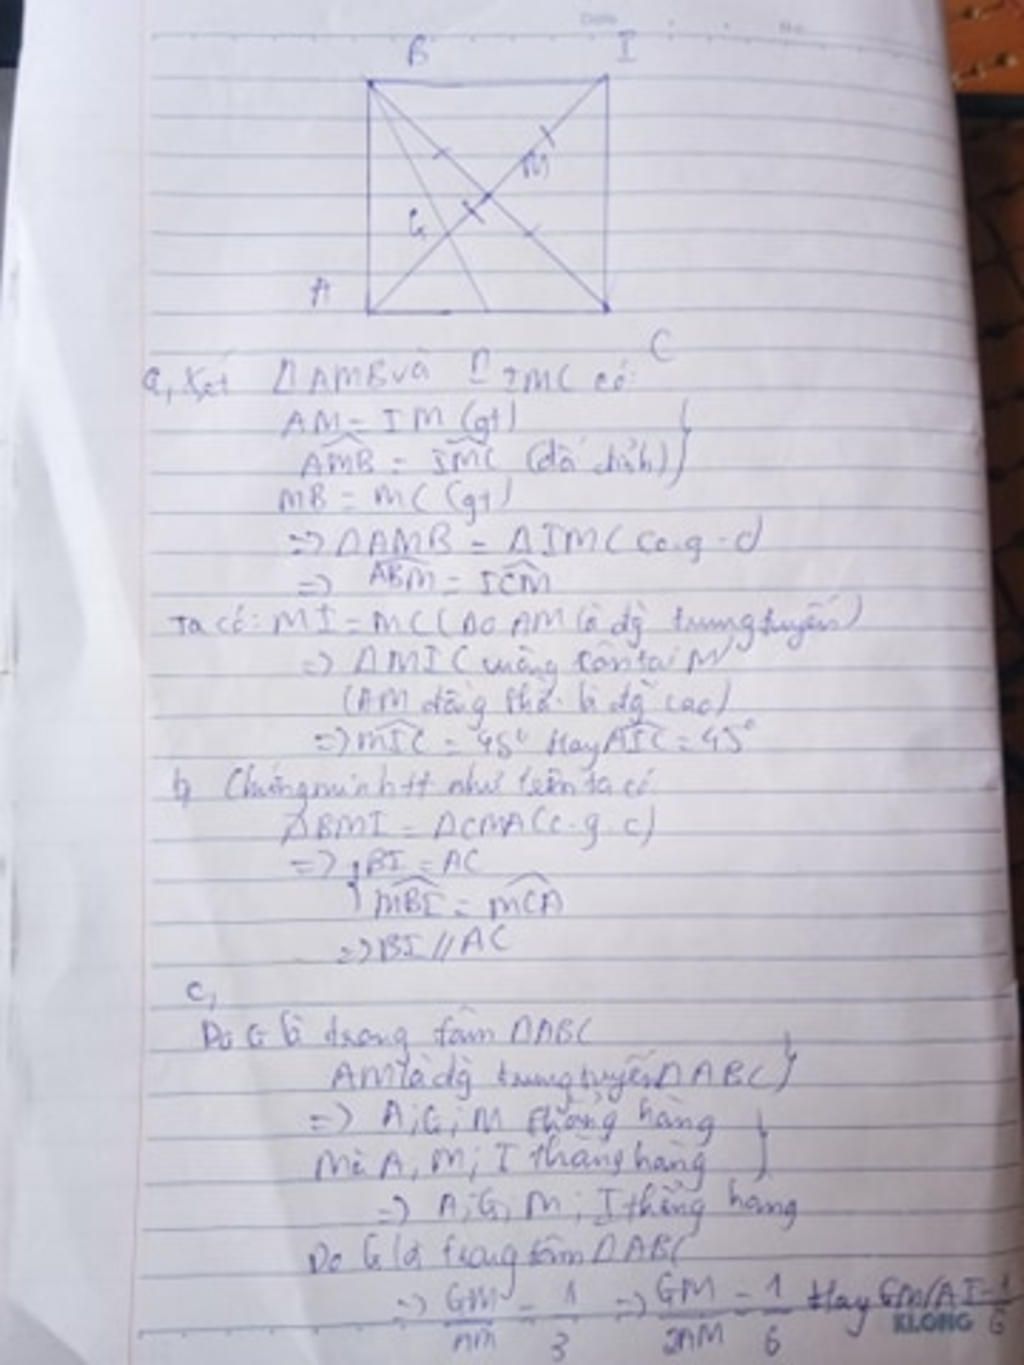 B I
M
G
A
C
a, Xét ΔAMB và Δ IMC có:
AM = IM (gt)
AMB = IMC (đối đỉnh)
MB = MC (gt)
=> ΔAMB = ΔIMC (c.g.c)
=> ABM = ICM
Ta có: MI = MC (Do AM là đg trung tuyến)
=> ΔMIC vuông cân tại M
(AM đồng thời là đg cao)
=> MIC = 45° Hay AIC = 45°
b, Chứng minh tt như trên ta có
ΔBMI = ΔCMA (c.g.c)
=> BI = AC
MBI = MCA
=> BI // AC
c,
Do G là trọng tâm ΔABC
AM là đg trung tuyến ΔABC
=> A; G; M thẳng hàng
Mà A, M; I thẳng hàng
=> A; G; M; I thẳng hàng
Do G là trọng tâm ΔABC
=> GM/AM = 1/3 => GM/2AM = 1/6 Hay GM/AI = 1/6
KLONG